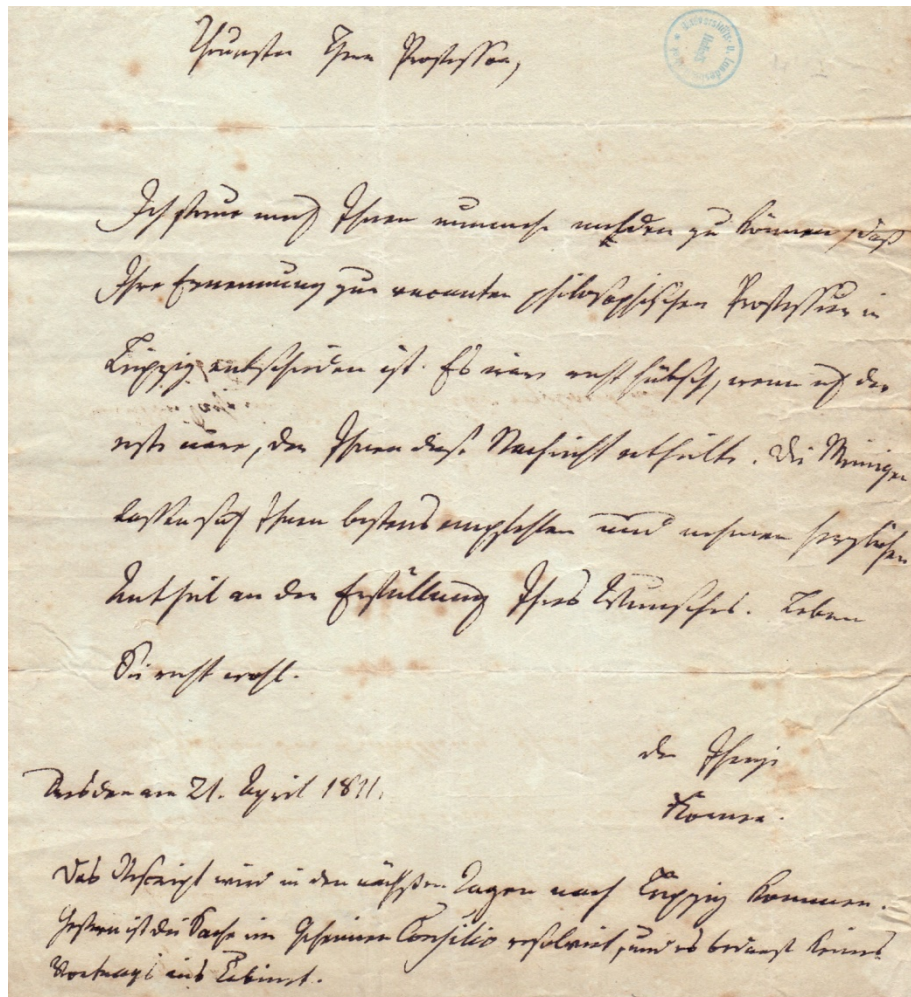 Theurster Herr Professor,
Ich freue mich Ihnen nunmehr melden zu können, daß
Ihre Ernennung zur vacanten philosophischen Professur in
Leipzig entschieden ist. Es wäre recht hübsch, wenn ich der
erste wäre, der Ihnen diese Nachricht ertheilte. Die Meinigen
lassen sich Ihnen bestens empfehlen und nehmen herzlichen
Antheil an der Erfüllung Ihres Wunsches. Leben
Sie recht wohl.
der Ihrige
Körner.
Dresden am 21. April 1811.
Das Rescript wird in den nächsten Tagen nach Leipzig kommen.
Gestern ist die Sache im Geheimen Consilio resolvirt, und es bedarf keines
Vortrags ins Cabinet.